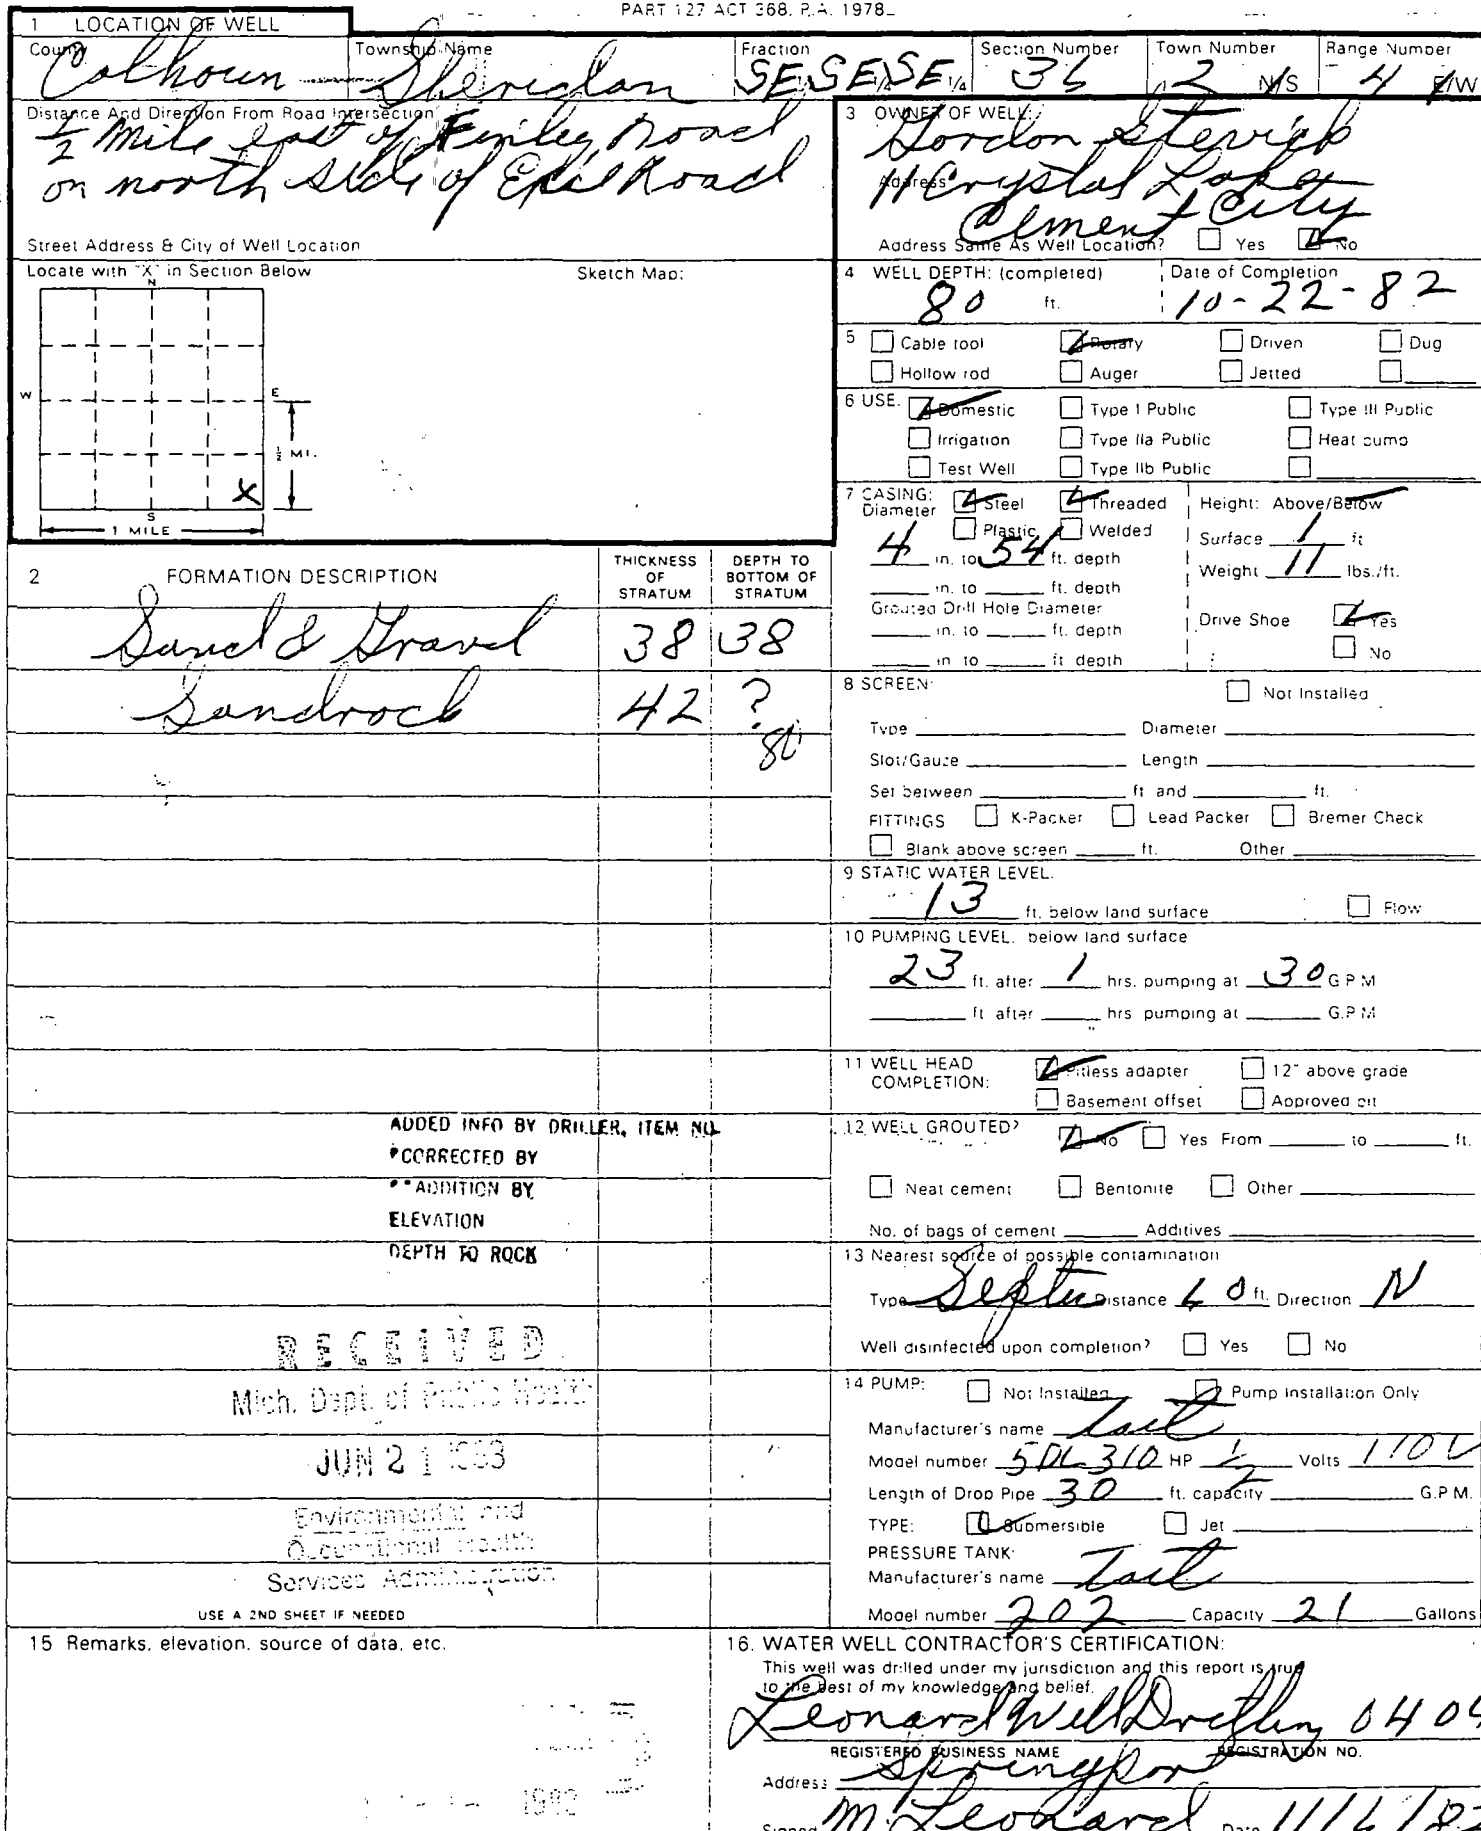 PART 127 ACT 368, P.A. 1978
1 LOCATION OF WELL
County Township Name Fraction Section Number Town Number Range Number
Calhoun Sheridan SE 1/4 SE 1/4 SE 1/4 36 2 N/S 4 E/W
Distance And Direction From Road Intersection
1/2 mile east of Finley Road
on north side of Road
Street Address & City of Well Location
Locate with "X" in Section Below Sketch Map:
N
W E
1/2 MI.
X
S
1 MILE
3 OWNER OF WELL:
Gordon
Address 11 Crystal Lake
Cement City
Address Same As Well Location? Yes No
4 WELL DEPTH: (completed) Date of Completion
80 ft. 10-22-82
5 Cable tool Rotary Driven Dug
Hollow rod Auger Jetted
6 USE: Domestic Type I Public Type III Public
Irrigation Type IIa Public Heat pump
Test Well Type IIb Public
7 CASING: Steel Threaded Height: Above/Below
Diameter Plastic Welded
Surface 1 ft
4 in. to 54 ft. depth
Weight 11 lbs./ft.
in. to ft. depth
Grouted Drill Hole Diameter
Drive Shoe Yes
in. to ft. depth
No
in to ft depth
2 FORMATION DESCRIPTION THICKNESS OF STRATUM DEPTH TO BOTTOM OF STRATUM
Sand & Gravel 38 38
Sandrock 42 ?
80
8 SCREEN: Not Installed
Type Diameter
Slot/Gauze Length
Set between ft and ft.
FITTINGS K-Packer Lead Packer Bremer Check
Blank above screen ft. Other
9 STATIC WATER LEVEL.
13 ft. below land surface Flow
10 PUMPING LEVEL. below land surface
23 ft. after 1 hrs. pumping at 30 G.P.M
ft after hrs pumping at G.P.M
11 WELL HEAD COMPLETION: Pitless adapter 12" above grade
Basement offset Approved pit
12 WELL GROUTED? No Yes From to ft.
Neat cement Bentonite Other
No. of bags of cement Additives
13 Nearest source of possible contamination
Type Septic Distance 60 ft. Direction N
Well disinfected upon completion? Yes No
14 PUMP: Not Installed Pump Installation Only
Manufacturer's name Tait
Model number 5DL310 HP 1/2 Volts 110V
Length of Drop Pipe 30 ft. capacity G.P.M.
TYPE: Submersible Jet
PRESSURE TANK:
Manufacturer's name Tait
Model number 202 Capacity 21 Gallons
ADDED INFO BY DRILLER, ITEM NO.
*CORRECTED BY
**ADDITION BY
ELEVATION
DEPTH TO ROCK
RECEIVED
Mich. Dept. of Public Health
JUN 21 1983
Environmental and
Occupational Health
Services Administration
USE A 2ND SHEET IF NEEDED
15 Remarks, elevation, source of data, etc.
1982
16. WATER WELL CONTRACTOR'S CERTIFICATION:
This well was drilled under my jurisdiction and this report is true
to the best of my knowledge and belief.
Leonard Well Drilling 0404
REGISTERED BUSINESS NAME REGISTRATION NO.
Address Springport
Signed M. Leonard Date